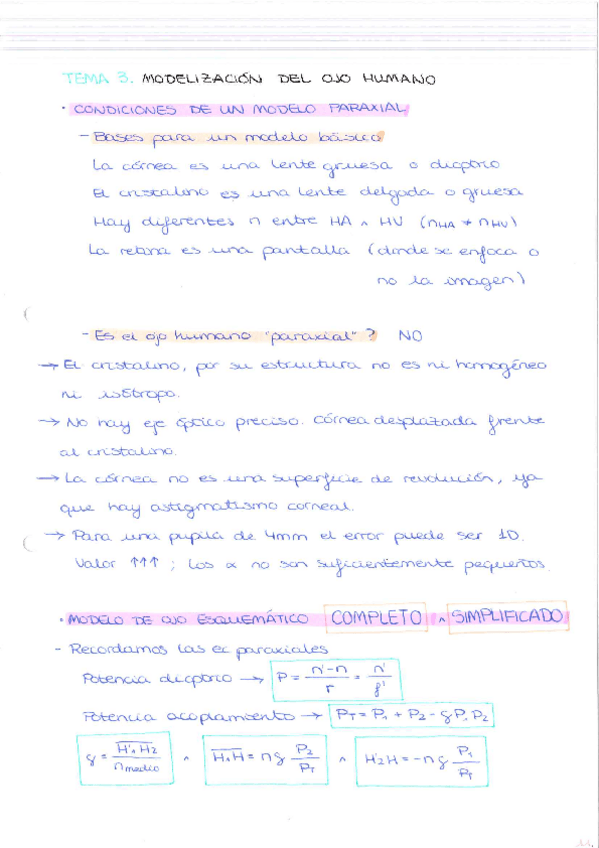 TEMA 3. MODELIZACIÓN DEL OJO HUMANO
· CONDICIONES DE UN MODELO PARAXIAL
- Bases para un modelo básico
La córnea es una lente gruesa o dioptrio
El cristalino es una lente delgada o gruesa
Hay diferentes n entre HA ^ HV (nHA ≠ nHV)
La retina es una pantalla (donde se enfoca o
no la imagen)
- Es el ojo humano "paraxial"? NO
→ El cristalino, por su estructura no es ni homogéneo
ni isótropo.
→ No hay eje óptico preciso. Córnea desplazada frente
al cristalino.
→ La córnea no es una superficie de revolución, ya
que hay astigmatismo corneal.
→ Para una pupila de 4mm el error puede ser 1D.
Valor ↑↑↑ ; los α no son suficientemente pequeños.
· MODELO DE OJO ESQUEMÁTICO COMPLETO ^ SIMPLIFICADO
- Recordamos las ec paraxiales
Potencia dioptrio → P = (n'-n)/r = n'/f'
Potencia acoplamiento → PT = P1 + P2 - δP1P2
δ = H'1H2/nmedio ^ H1H = nδ P2/PT ^ H'2H' = -nδ P1/PT